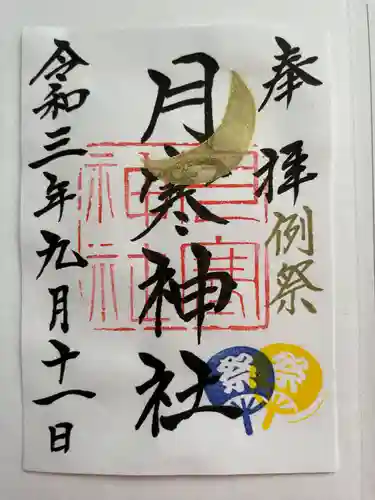 奉拝
例祭
月寒神社
月寒
神社
祭
祭
令和三年九月十一日